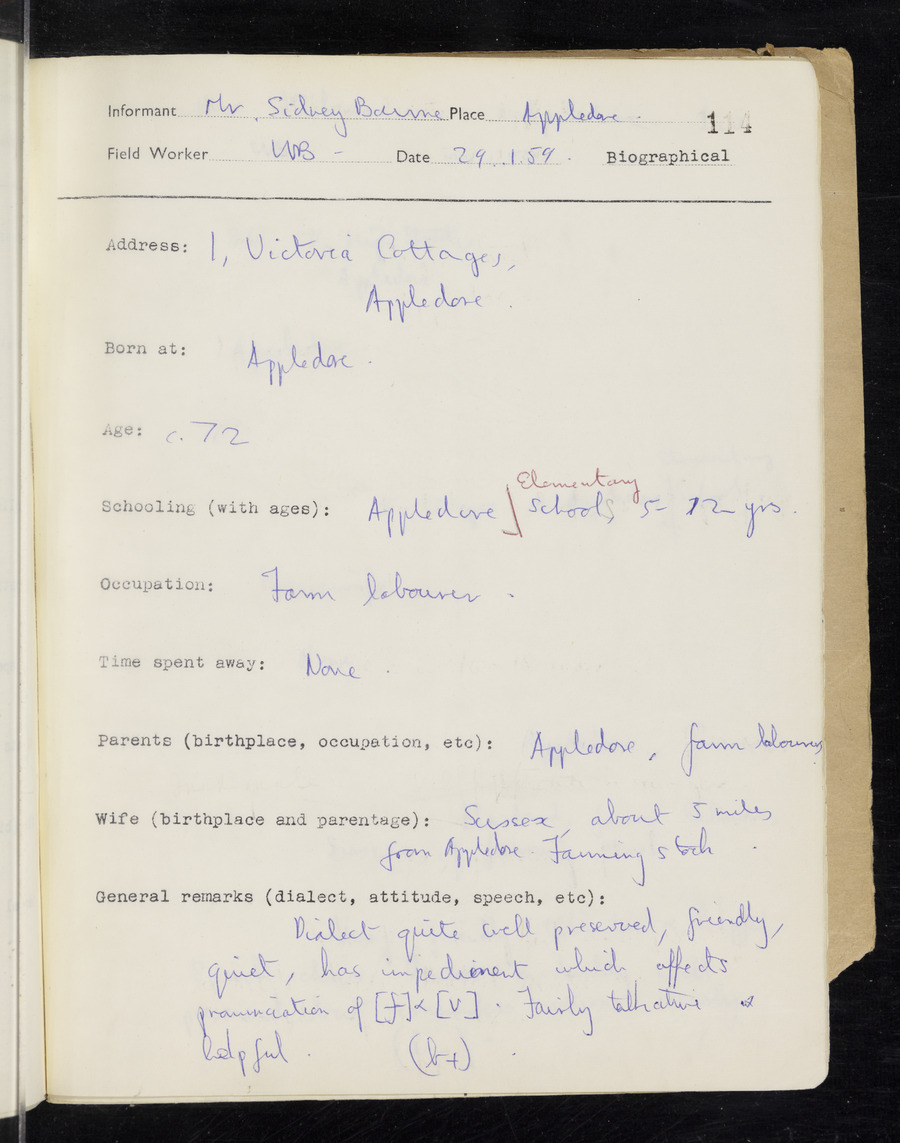 Informant Mr. Sidney Bourne Place Appledore. 114
Field Worker WB - Date 29.1.59. Biographical
Address: 1, Victoria Cottages,
Appledore.
Born at: Appledore.
Age: c. 72
Elementary
Schooling (with ages): Appledore ] School, 5 - 12 yrs.
Occupation: Farm labourer.
Time spent away: None.
Parents (birthplace, occupation, etc): Appledore, farm labourers
Wife (birthplace and parentage): Sussex, about 5 miles
from Appledore. Farming stock.
General remarks (dialect, attitude, speech, etc):
Dialect quite well preserved, friendly,
quiet, has impediment which affects
pronunciation of [f] & [v]. Fairly talkative &
helpful. (b+).